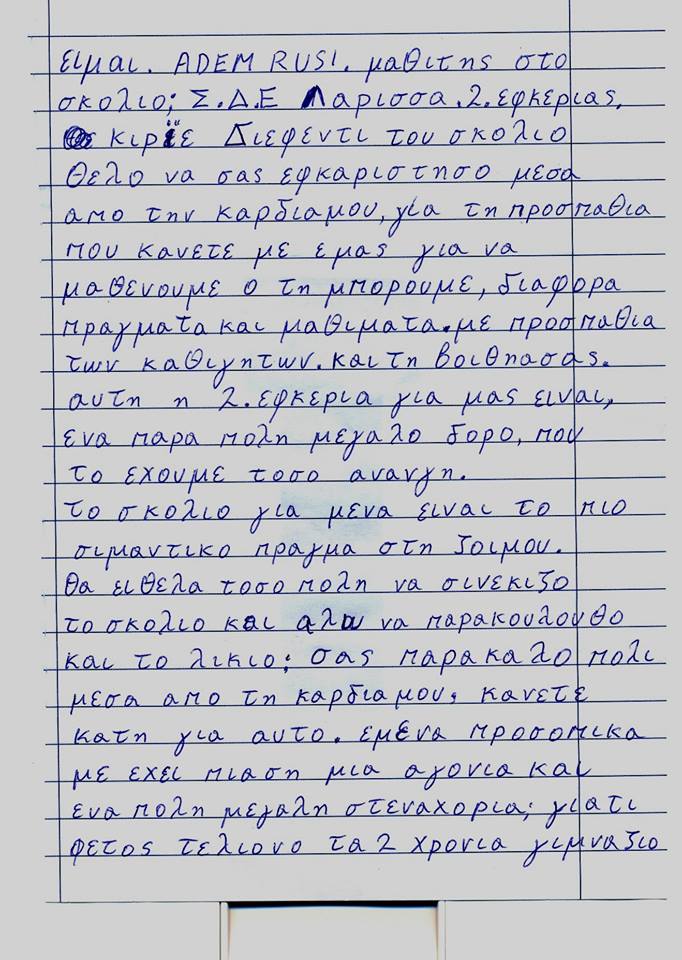 ειμαι. ADEM RUSI. μαθιτης στο
σκολιο; Σ.Δ.Ε Λαρισσα.2.εφκεριας.
κιριε Διεφεντι του σκολιο
Θελο να σας εφκαριστησο μεσα
απο την καρδιαμου, για τη προσπαθια
που κανετε με εμας για να
μαθενουμε ο τη μπορουμε, διαφορα
πραγματα και μαθιματα. με προσπαθια
των καθιγητων. και τη βοιθηασας.
αυτη η 2. εφκερια για μας ειναι,
ενα παρα πολη μεγαλο δορο, που
το εχουμε τοσο ανανγη.
το σκολιο για μενα ειναι το πιο
σιμαντικο πραγμα στη ζοιμου.
θα ειθελα τοσο πολη να σινεκιζο
το σκολιο και αλω να παρακουλουθο
και το λικιο; σας παρακαλο πολι
μεσα απο τη καρδιαμου, κανετε
κατη για αυτο. εμενα προσοπικα
με εχει πιαση μια αγονια και
ενα πολη μεγαλη στεναχορια; γιατι
φετος τελιονο τα 2 χρονια γιμναζιο